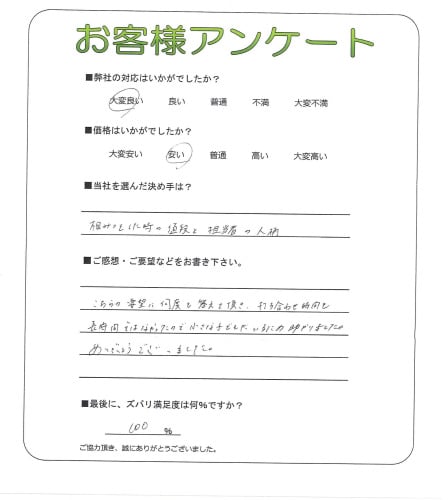 お客様アンケート
■弊社の対応はいかがでしたか？
大変良い 良い 普通 不満 大変不満
■価格はいかがでしたか？
大変安い 安い 普通 高い 大変高い
■当社を選んだ決め手は？
相みつをした時の値段と担当者の人柄
■ご感想・ご要望などをお書き下さい。
こちらの要望に何度も答えて頂き、打ち合わせ時間も
長時間ではなかったので小さな子どもが
ありがとうございました。
■最後に、ズバリ満足度は何%ですか？
100 %
ご協力頂き、誠にありがとうございました。